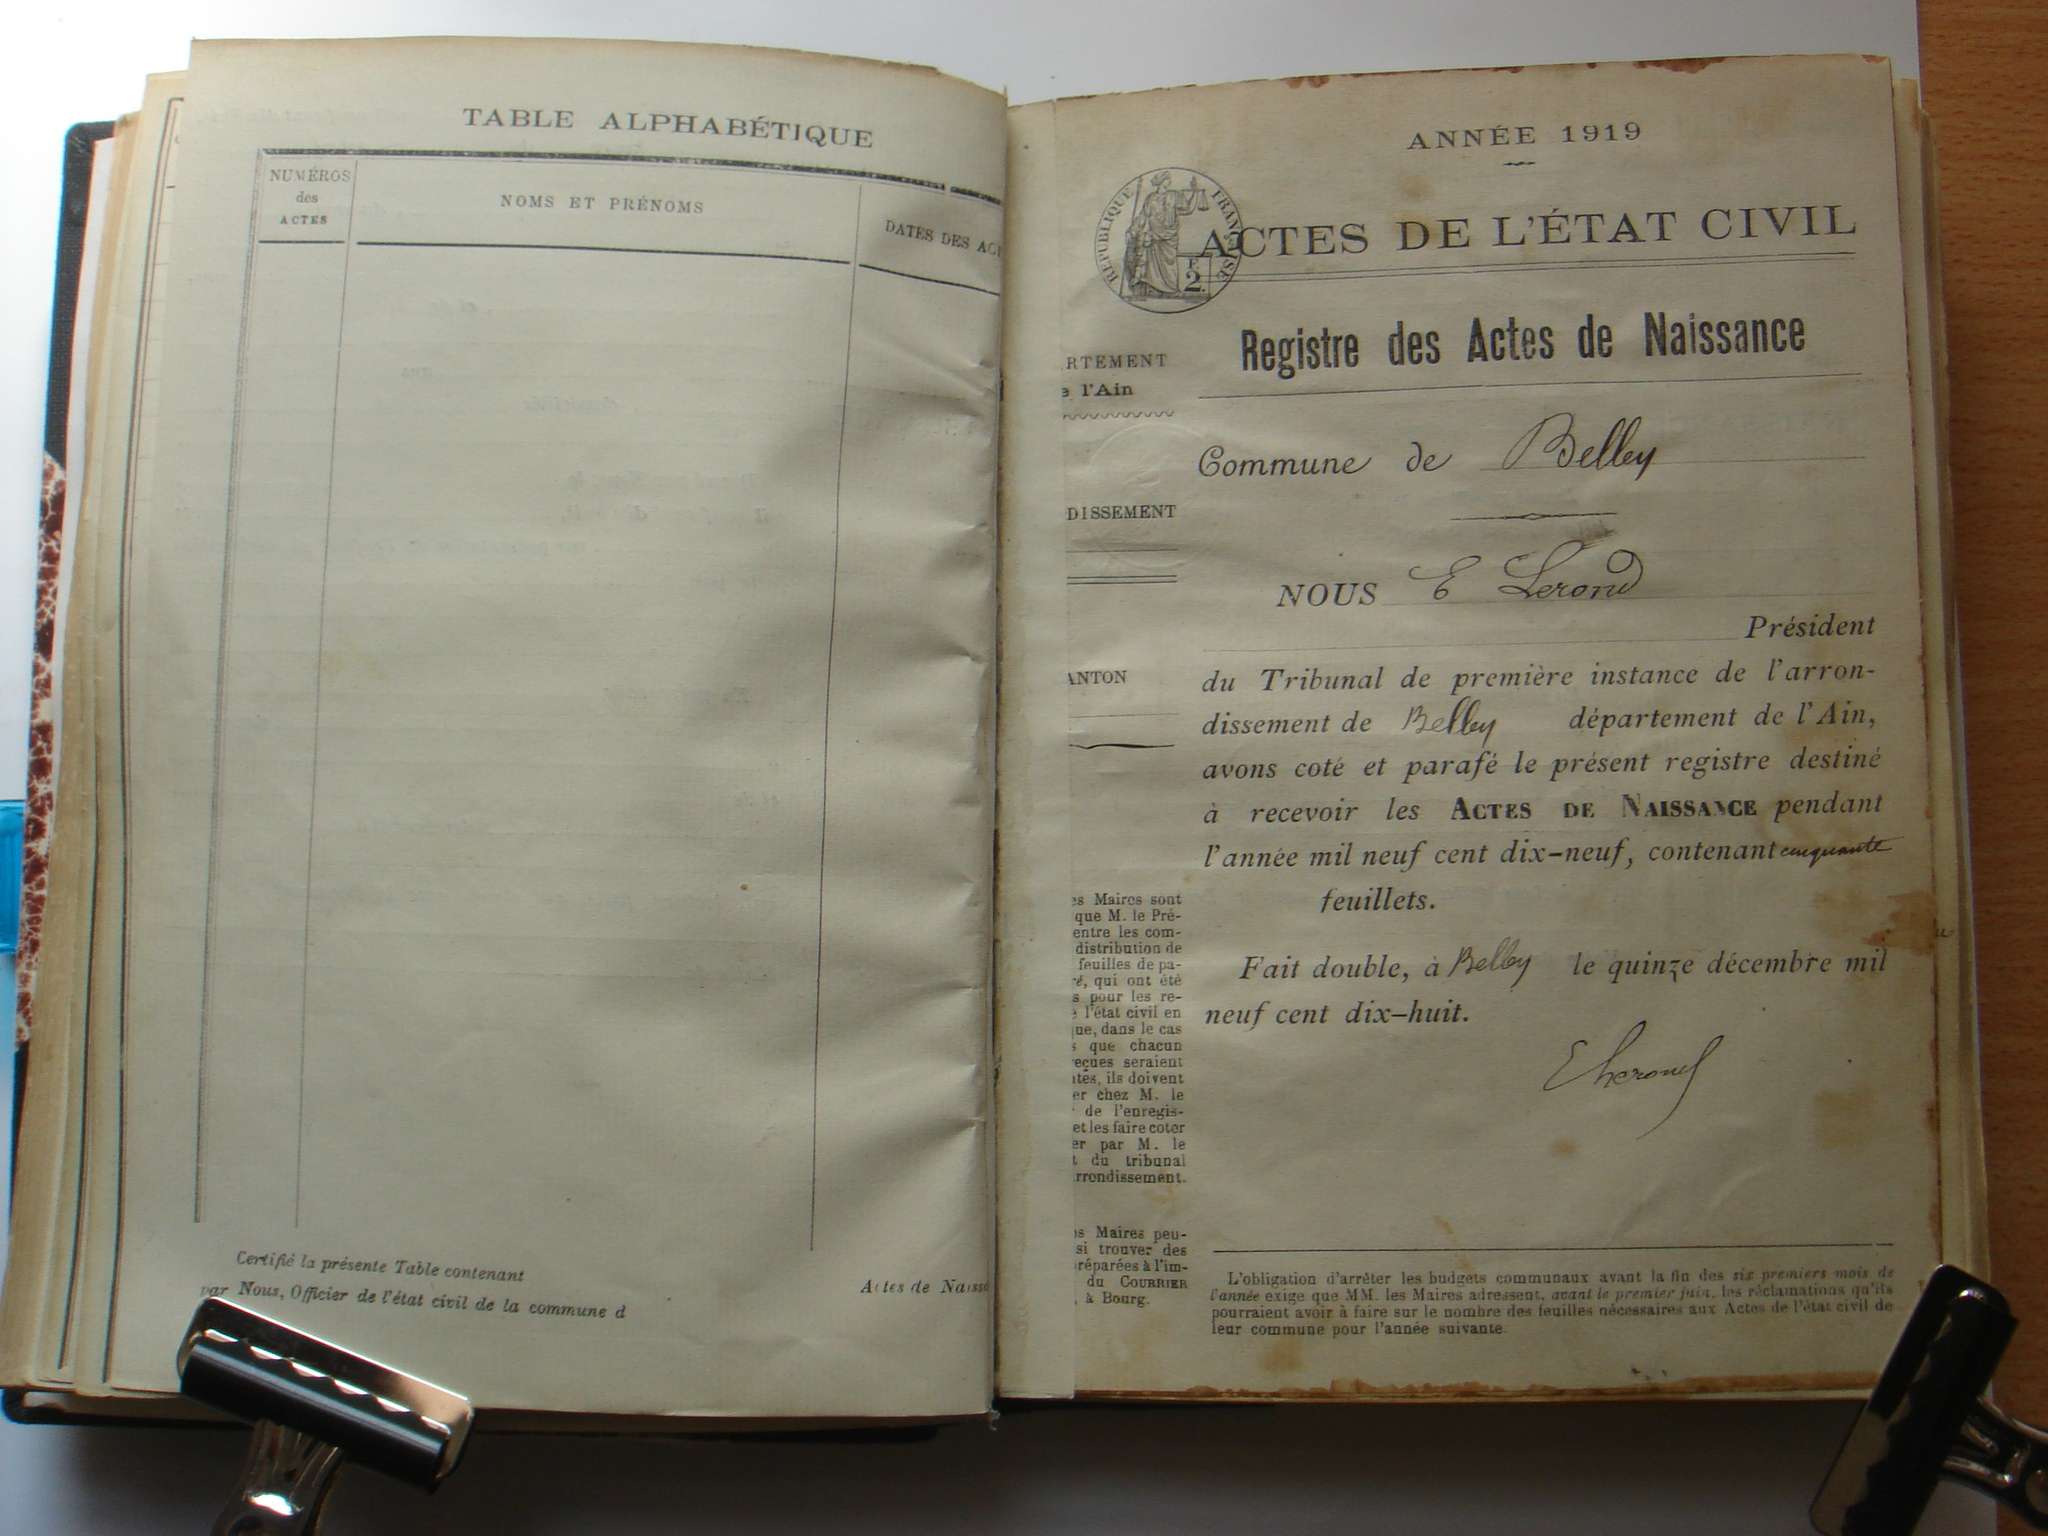 TABLE ALPHABÉTIQUE
NUMÉROS
des
ACTES
NOMS ET PRÉNOMS
DATES DES AC
Certifié la présente Table contenant
par Nous, Officier de l'état civil de la commune d
Actes de Naiss
ANNÉE 1919
RÉPUBLIQUE FRANÇAISE
F
2.
ACTES DE L'ÉTAT CIVIL
Registre des Actes de Naissance
RTEMENT
l'Ain
Commune de Belley
DISSEMENT
NOUS E Lerond
Président
ANTON
du Tribunal de première instance de l'arron-
dissement de Belley département de l'Ain,
avons coté et parafé le présent registre destiné
à recevoir les ACTES DE NAISSANCE pendant
l'année mil neuf cent dix-neuf, contenant cinquante
feuillets.
Fait double, à Belley le quinze décembre mil
neuf cent dix-huit.
ELerond
es Maires sont
que M. le Pré-
entre les com-
distribution de
feuilles de pa-
ré, qui ont été
s pour les re-
l'état civil en
ue, dans le cas
s que chacun
eçues seraient
ntes, ils doivent
er chez M. le
de l'enregis-
et les faire coter
er par M. le
t du tribunal
rrondissement.
s Maires peu-
si trouver des
réparées à l'im-
du COURRIER
, à Bourg.
L'obligation d'arrêter les budgets communaux avant la fin des six premiers mois de
l'année exige que MM. les Maires adressent, avant le premier juin, les réclamations qu'ils
pourraient avoir à faire sur le nombre des feuilles nécessaires aux Actes de l'état civil de
leur commune pour l'année suivante.